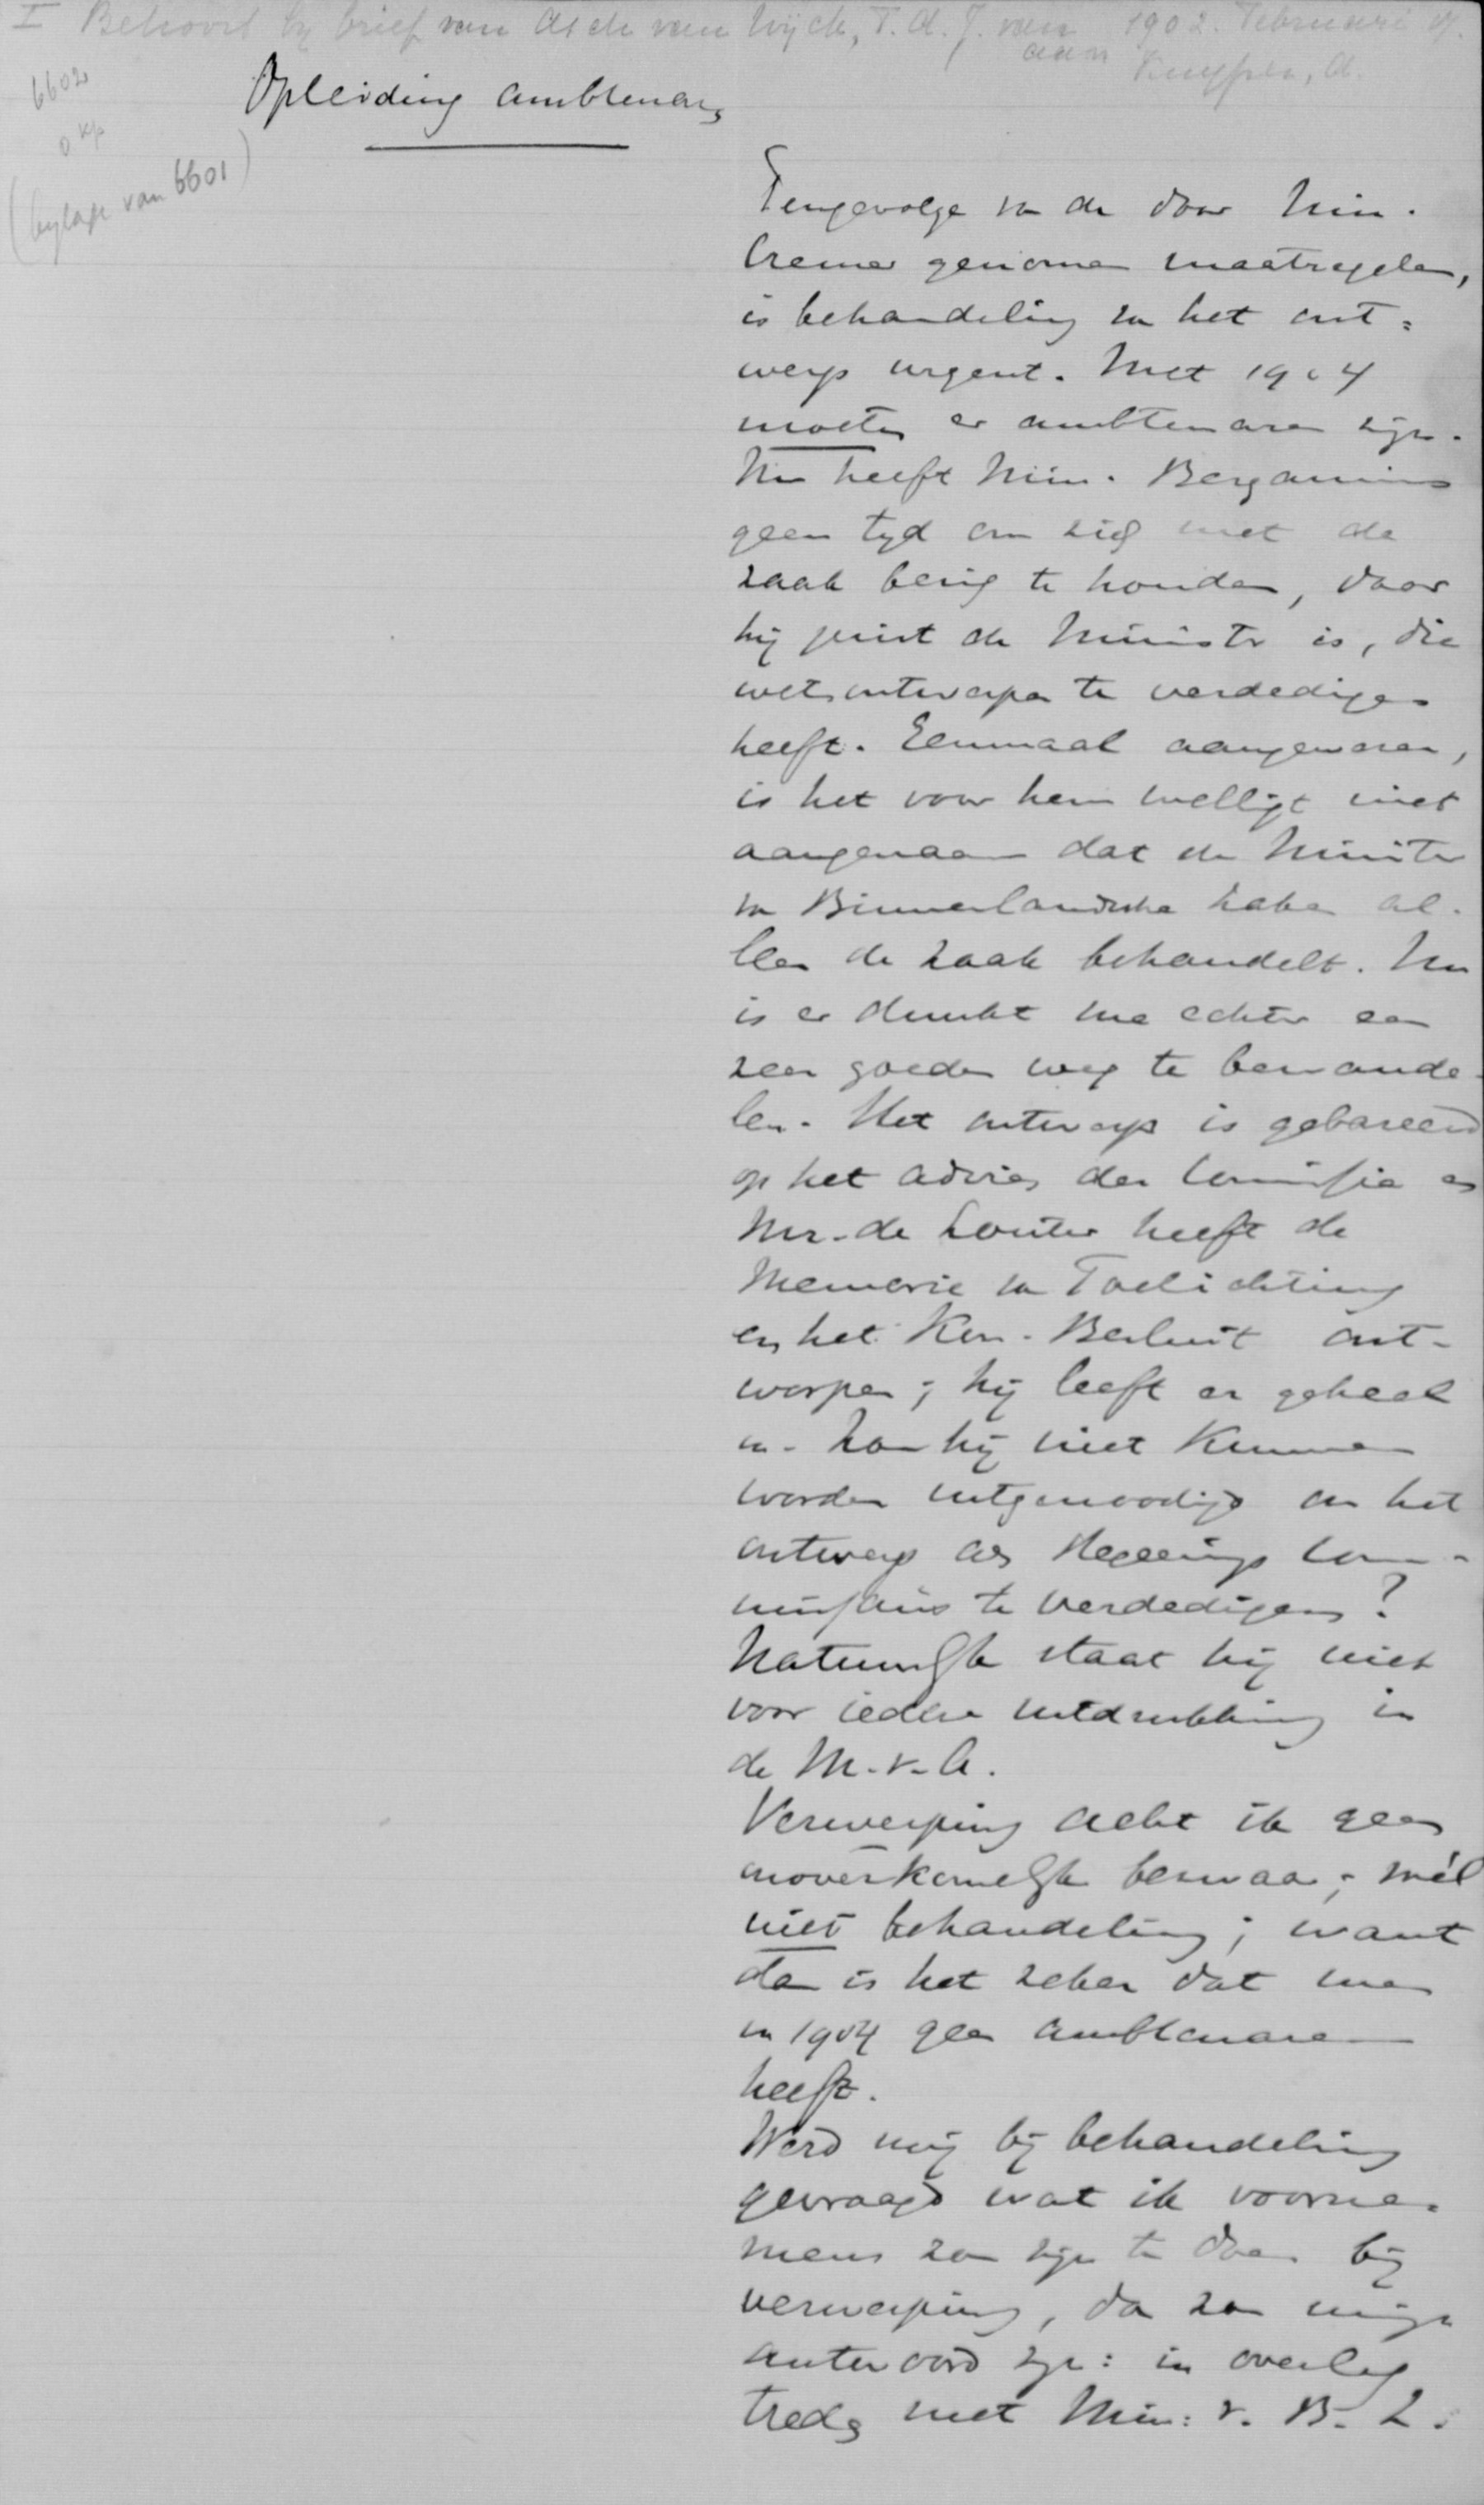 I Behoort bij brief van Asch van Wijck, T. A. J. van 1902. Februari
aan Kuyper, A.
6602
0 kp
(bylage van 6601)
Opleiding ambtenaren
Tengevolge van de door Min.
Cremer genomen maatregelen,
is behandeling van het ont=
werp urgent. Met 1904
moeten er ambtenaren zijn.
Nu heeft Min. Bergansius
geen tyd om zich met de
zaak bezig te houden, daar
hij juist de Minister is, die
wetsontwerpen te verdedigen
heeft. Eenmaal aangewezen,
is het voor hem welligt niet
aangenaam dat de Minister
van Binnenlandsche Zaken al-
leen de zaak behandelt. Nu
is er dunkt me echter een
zeer goeden weg te bewande-
len. Het ontwerp is gebaseerd
op het advies der Commissie en
Mr. de Louter heeft de
Memorie van Toelichting
en het Kon. Besluit ont-
worpen; hij leeft er geheel
in. Zou hij niet kunnen
worden uitgenoodigd om het
ontwerp als Regeerings Com-
missaris te verdedigen?
Natuurlijk staat hij niet
voor iedere uitdrukking in
de M.v.A.
Verwerping acht ik geen
onoverkomelijk bezwaar; wél
niet behandeling; want
dan is het zeker dat men
in 1904 geen ambtenaren
heeft.
Werd mij bij behandeling
gevraagd wat ik voorne-
mens zou zijn te doen bij
verwerping, dan zou mijn
antwoord zijn: in overleg
treden met Min: v. B. Z.